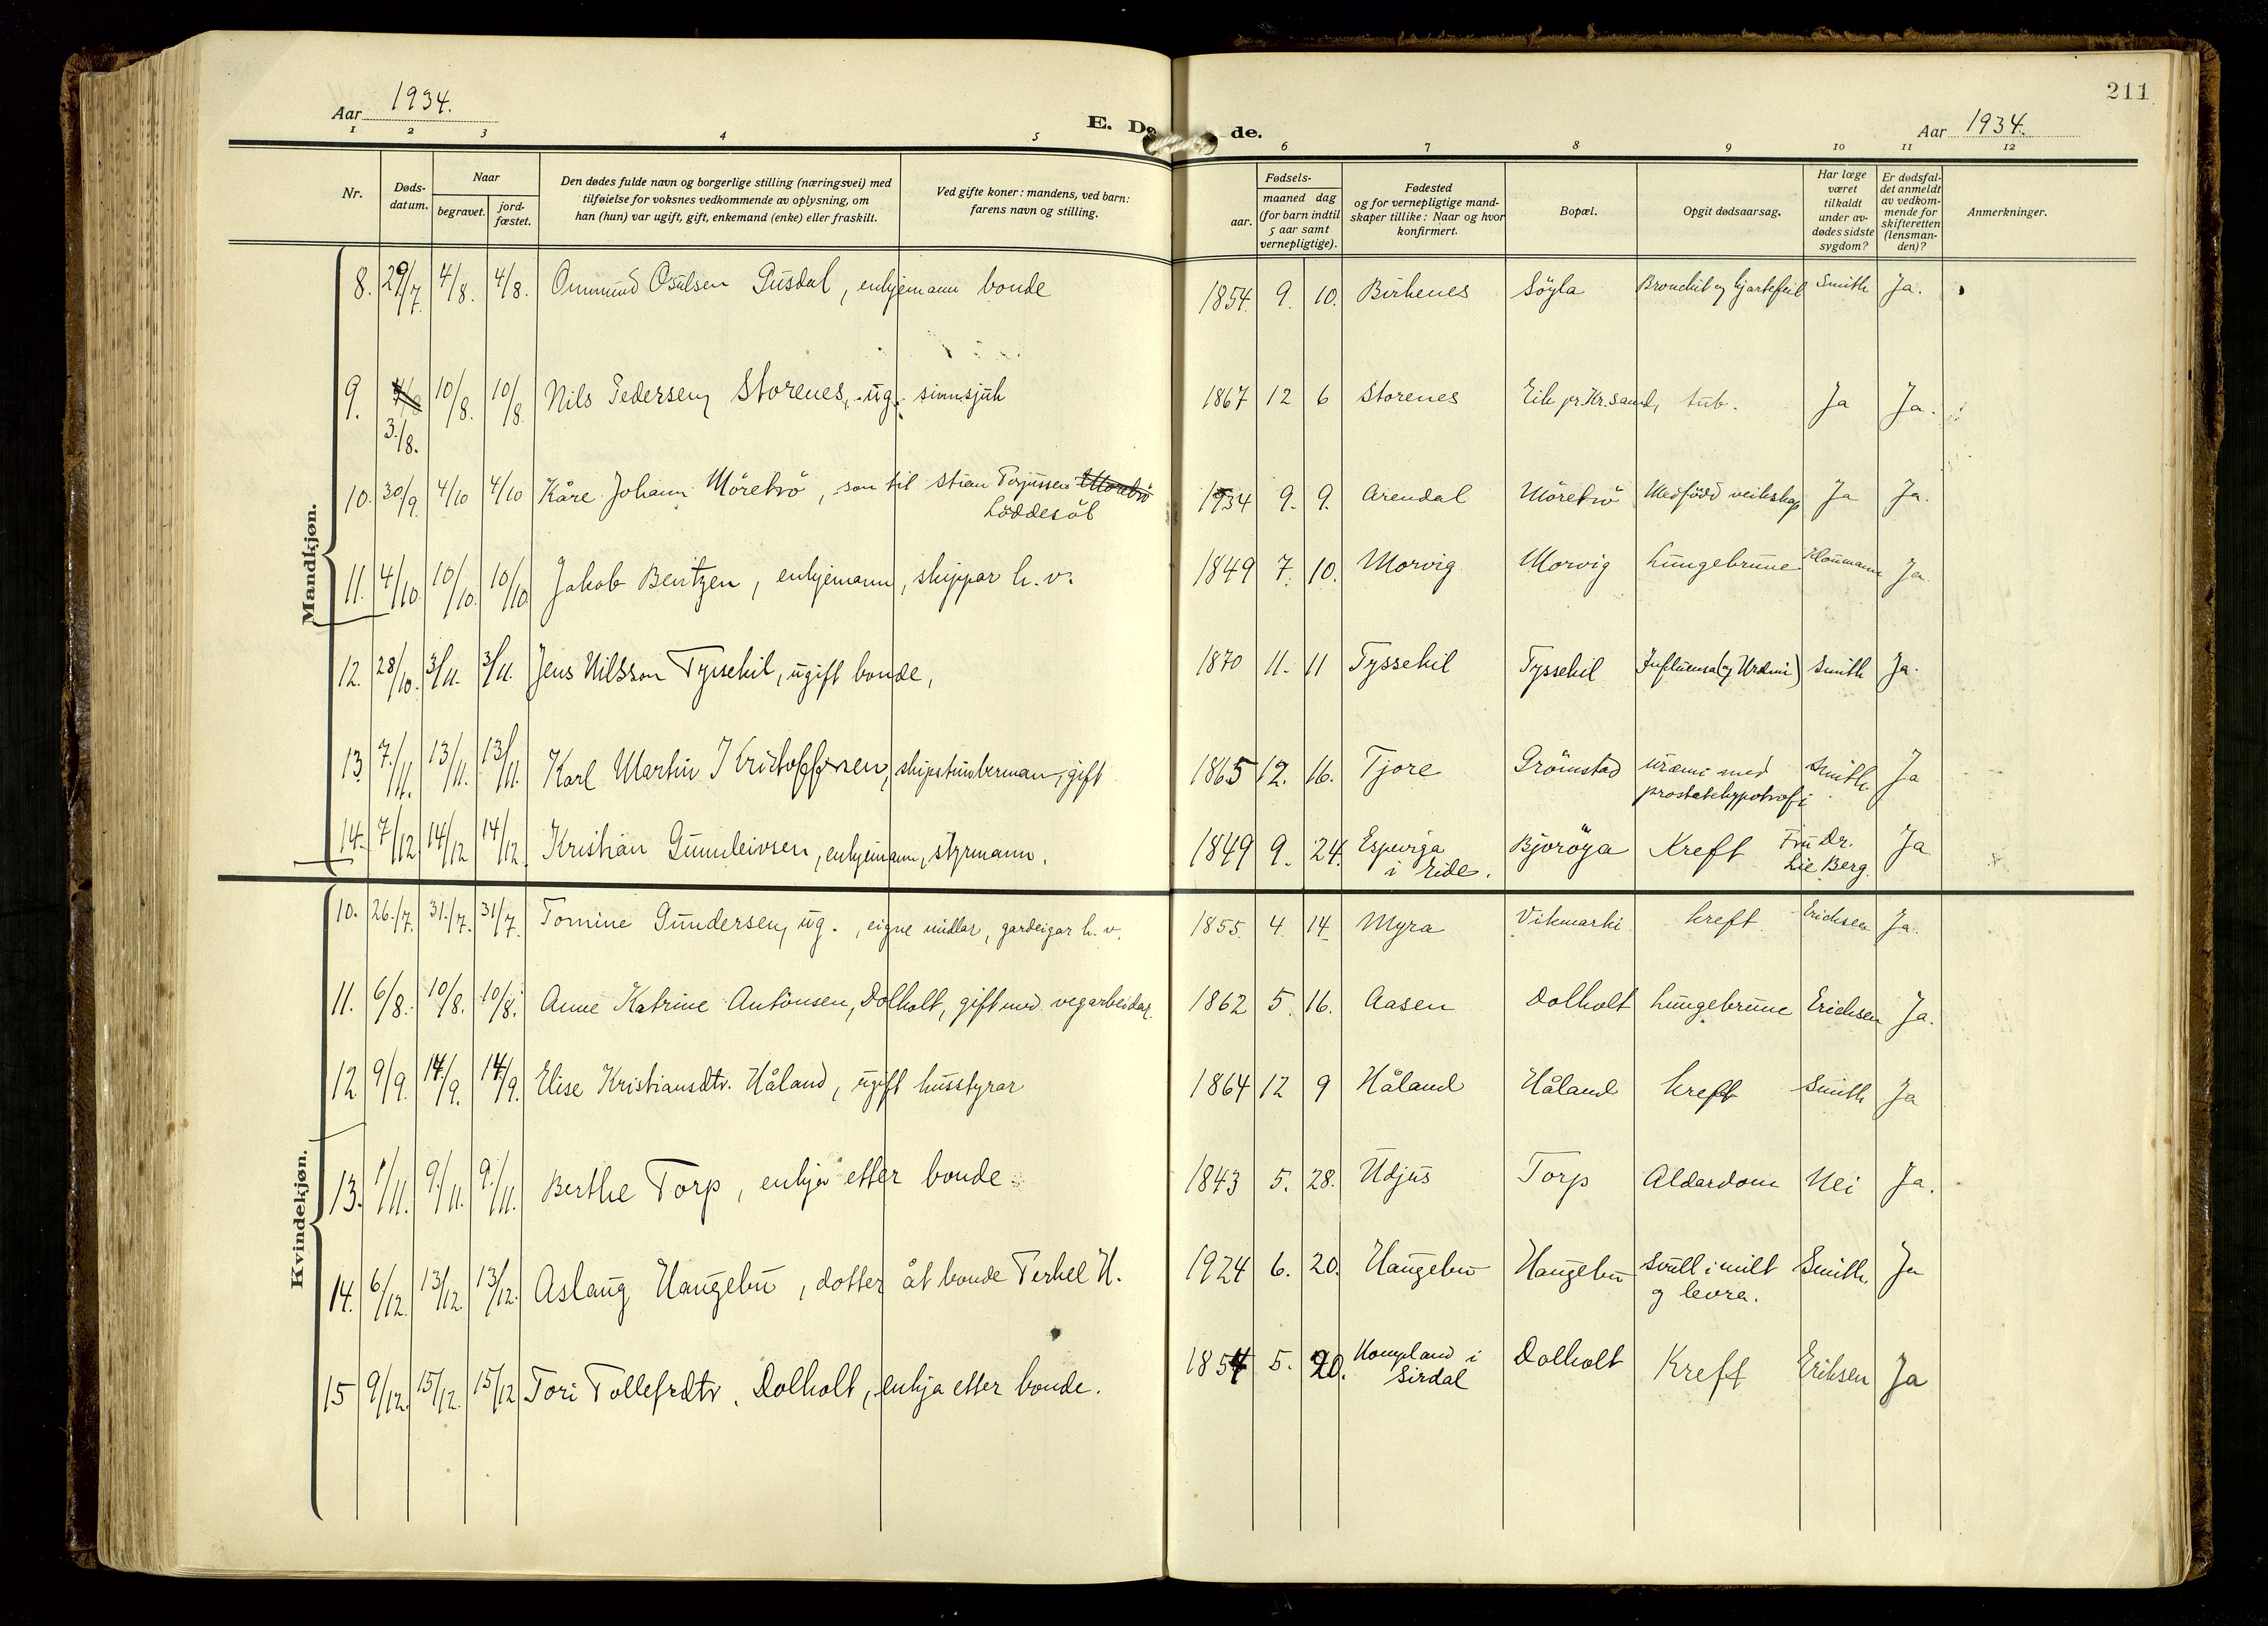 211
Aar 1934.
E. Dø de.
Aar 1934.
1 2 3 4 5 6 7 8 9 10 11 12
Nr.
Døds-
datum.
Naar
begravet.
jord-
fæstet.
Den dødes fulde navn og borgerlige stilling (næringsvei) med
tilføielse for voksnes vedkommende av oplysning, om
han (hun) var ugift, gift, enkemand (enke) eller fraskilt.
Ved gifte koner: mandens, ved barn:
farens navn og stilling.
Fødsels-
aar.
maaned dag
(for barn indtil
5 aar samt
vernepligtige).
Fødested
og for vernepligtige mand-
skaper tillike: Naar og hvor
konfirmert.
Bopæl.
Opgit dødsaarsag.
Har læge
været
tilkaldt
under av-
dødes sidste
sygdom?
Er dødsfal-
det anmeldt
av vedkom-
mende for
skifteretten
(lensman-
den)?
Anmerkninger.
Mandkjøn.
8. 29/7. 4/8. 4/8. Ommund Osulsen Gusdal, enkjemann bonde 1854. 9. 10. Birkenes Söyla Bronchit og hjartefeil Smith Ja.
9. 4/8 10/8. 10/8 Nils Pedersen, Storenes, ug. sinnsjuk 1867 12 6 Storenes Eik pr. Kr.sand, tub. Ja Ja.
3./8.
10. 30/9. 4/10 4/10 Kåre Johann Möretrö, son til Stian Terjussen Möretrö 1934 9. 9. Arendal Möretrö Medfödd veikskap Ja Ja.
Löddesöl
11. 4/10. 10/10. 10/10. Jakob Bentzen, enkjemann, skippar h. v. 1849 7. 10. Morvig Morvig Lungebrune Houmann Ja
12. 28/10. 3/11. 3/11. Jens Nilsson Tyssekil, ugift bonde, 1870 11. 11 Tyssekil Tyssekil Influensa (og Uræmi) Smith Ja.
13. 7./11. 13/11. 13/11. Karl Martin Kristoffersen, skipstimberman, gift 1865 12. 16. Tjore Grömstad uræmi med Smith Ja
prostatehypotrofi
14. 7/12 14/12 14/12. Kristian Gunnleivsen, enkjemann, styrmann. 1849 9. 24. Espeviga Bjoröya Kreft Fru Dr. Ja
i Eide. Lie Berg.
Kvindekjøn.
10. 26./7. 31./7. 31/7. Tomine Gundersen, ug., eigne midlar, gardeigar h. v. 1855. 4. 14. Myra Vikmarki kreft Erichsen Ja.
11. 6/8. 10/8. 10/8. Anne Katrine Antonsen, Dolholt, gift med vegarbeidar. 1862 5. 16. Aasen Dolholt Lungebrune Erichsen Ja.
12 9/9. 14./9. 14./9. Elise Kristiansdtr. Håland, ugift husstyrar 1864 12 9 Håland Håland kreft Smith Ja
13. 1/11. 9./11. 9./11. Berthe Torp, enkja etter bonde 1843 5. 28. Udjus Torp Alderdom Nei Ja.
14. 6/12. 13/12. 13/12. Aslaug Haugebu, dotter åt bonde Terkel H. 1924 6. 20. Haugebu Haugebu Svull i milt Smith Ja
og levra.
15 9/12. 15/12. 15/12 Tori Tollefsdtr. Dolholt, enkja etter bonde. 1854 5. 20. Hompland i Dolholt Kreft Eriksen Ja
Sirdal